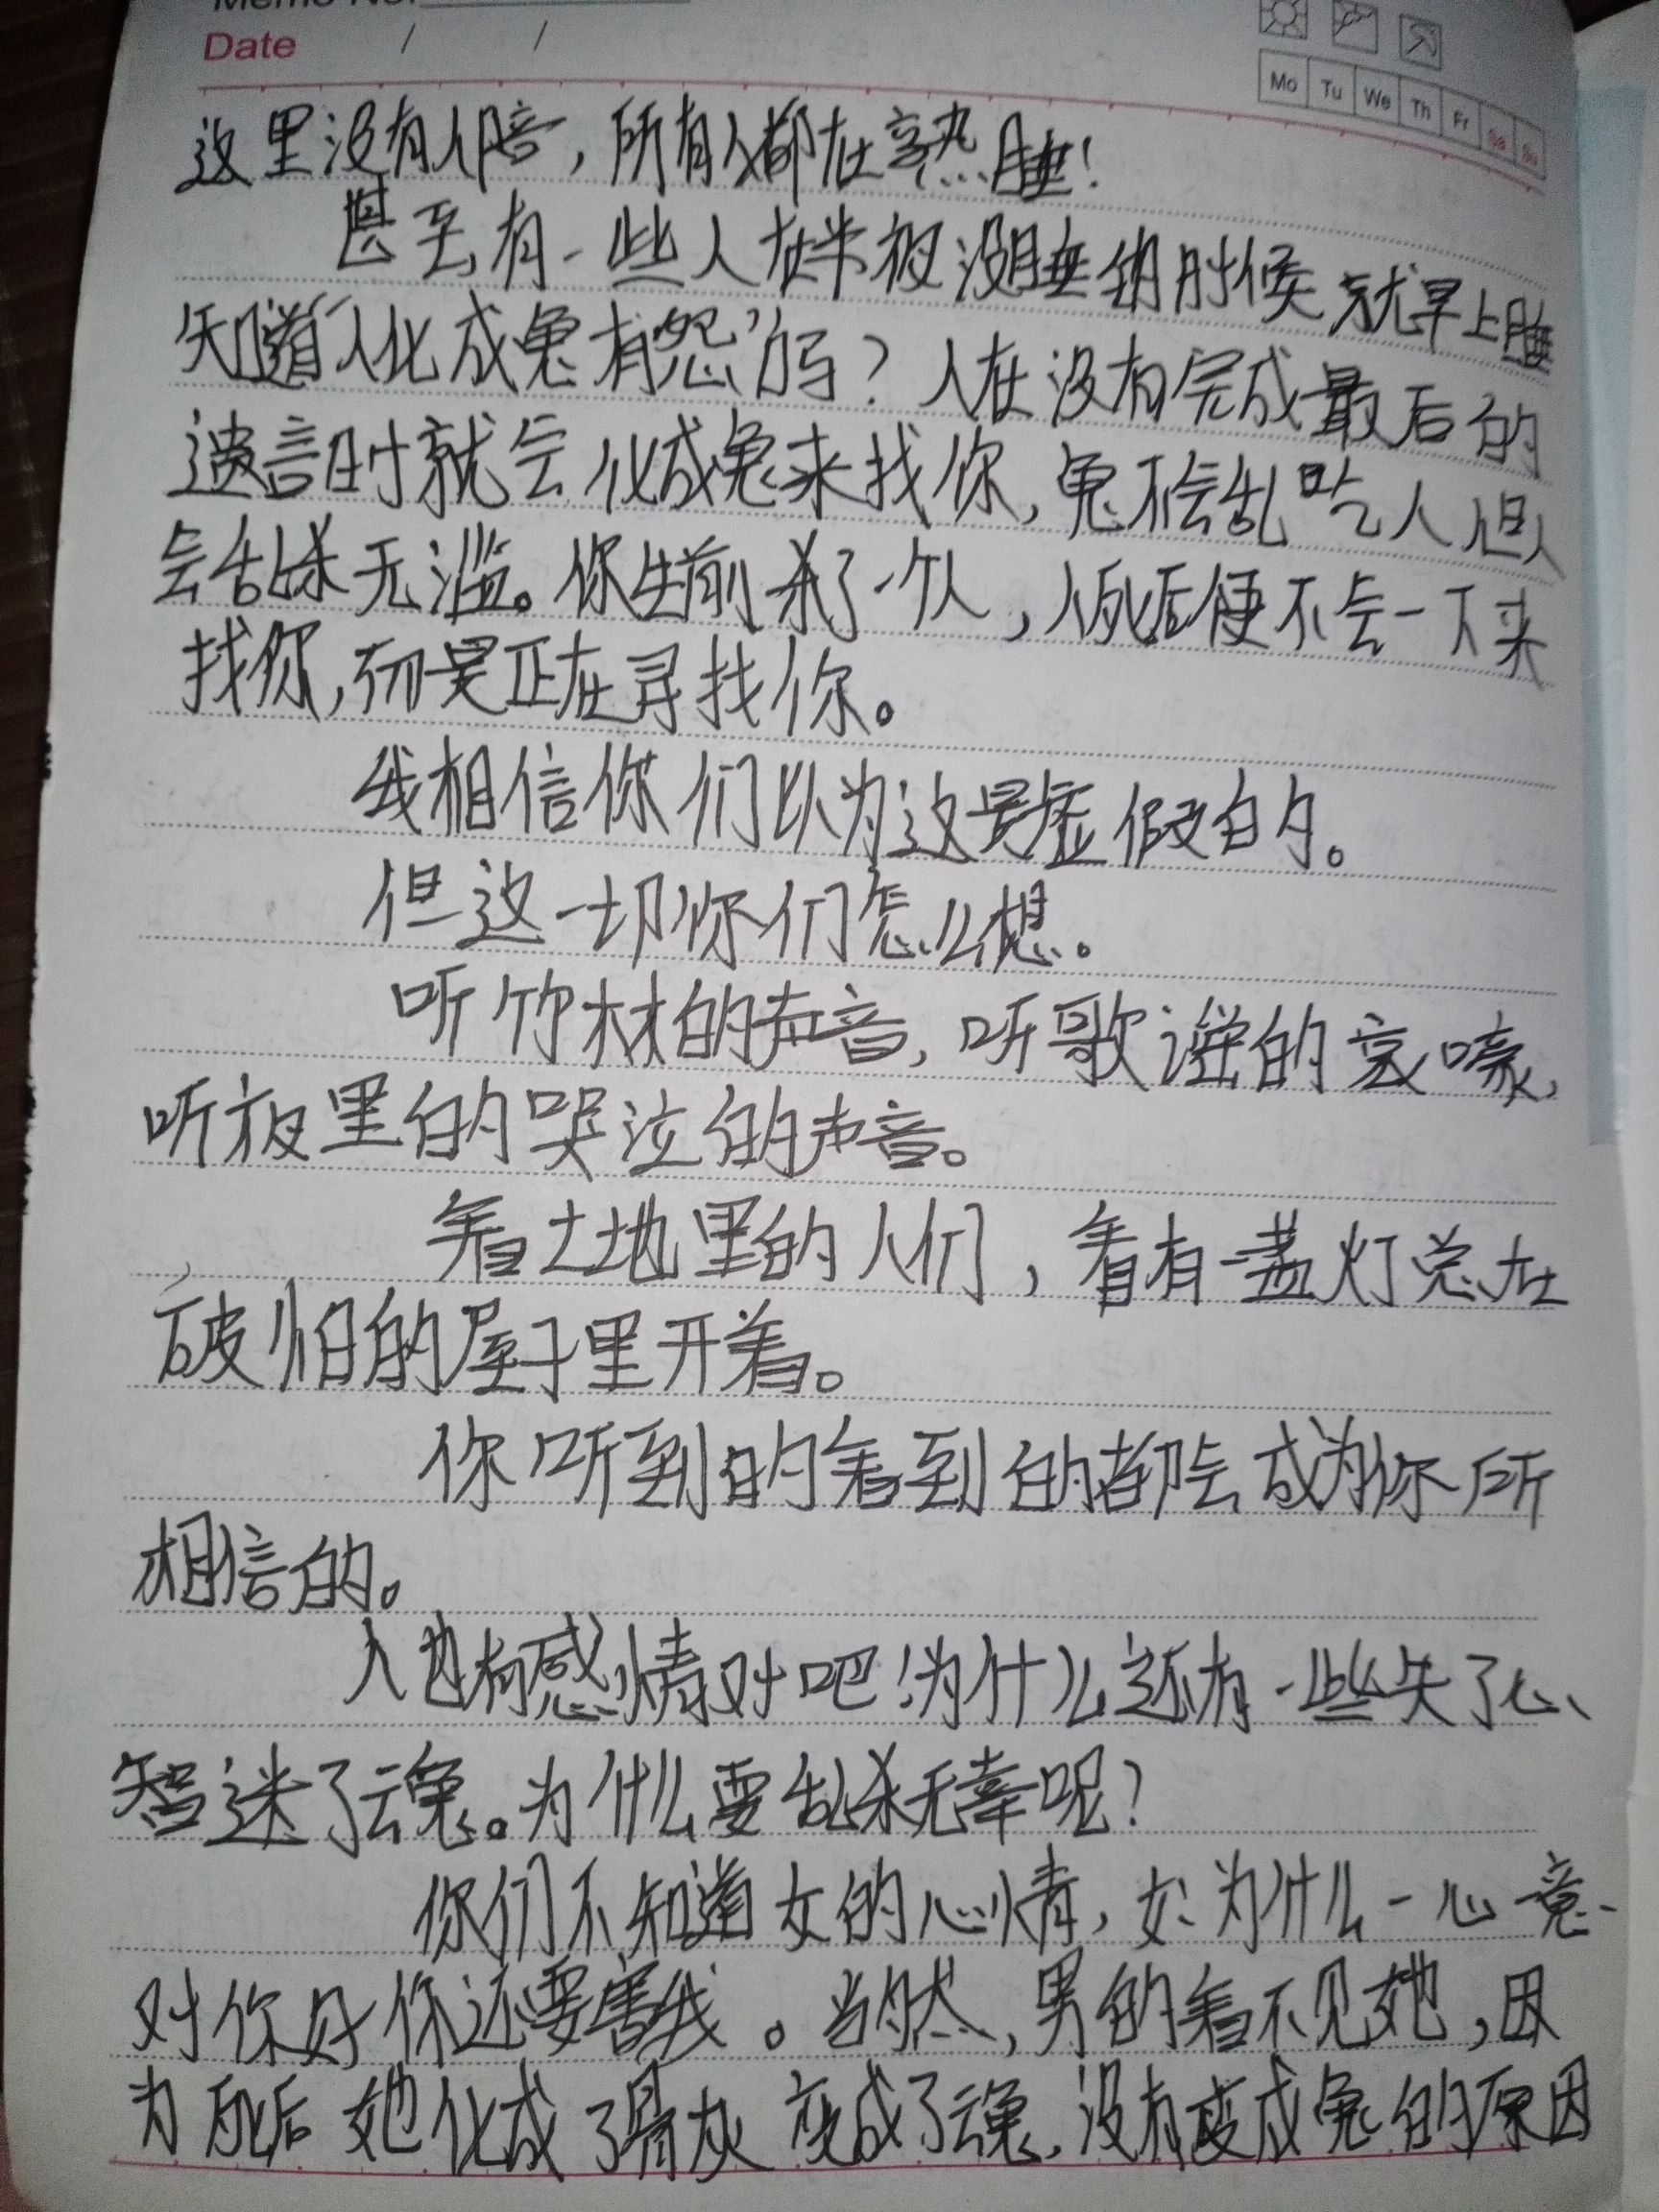 Memo No.
Date / /
Mo Tu We Th Fr Sa Su
这里没有人陪，所有人都在熟睡！
甚至有一些人在半夜没睡的时候就早上睡
知道“人化成鬼有怨”吗？人在没有完成最后的
遗言时就会化成鬼来找你，鬼不会乱吃人但人
会乱杀无滥。你生前杀了一个人，人死后便不会一下来
找你，而是正在寻找你。
我相信你们以为这是虚假的。
但这一切你们怎么想。
听竹材的声音，听歌谣的哀嚎，
听夜里的哭泣的声音。
看土地里的人们，看有一盏灯总在
破怕的屋子里开着。
你听到的看到的都会成为你所
相信的。
人也有感情对吧！为什么还有一些失了心、
智迷了魂。为什么要乱杀无辜呢？
你们不知道女的心情，女：为什么一心一意
对你好你还要害我。当然，男的看不见她，因
为死后她化成了骨灰变成了魂，没有变成鬼的原因